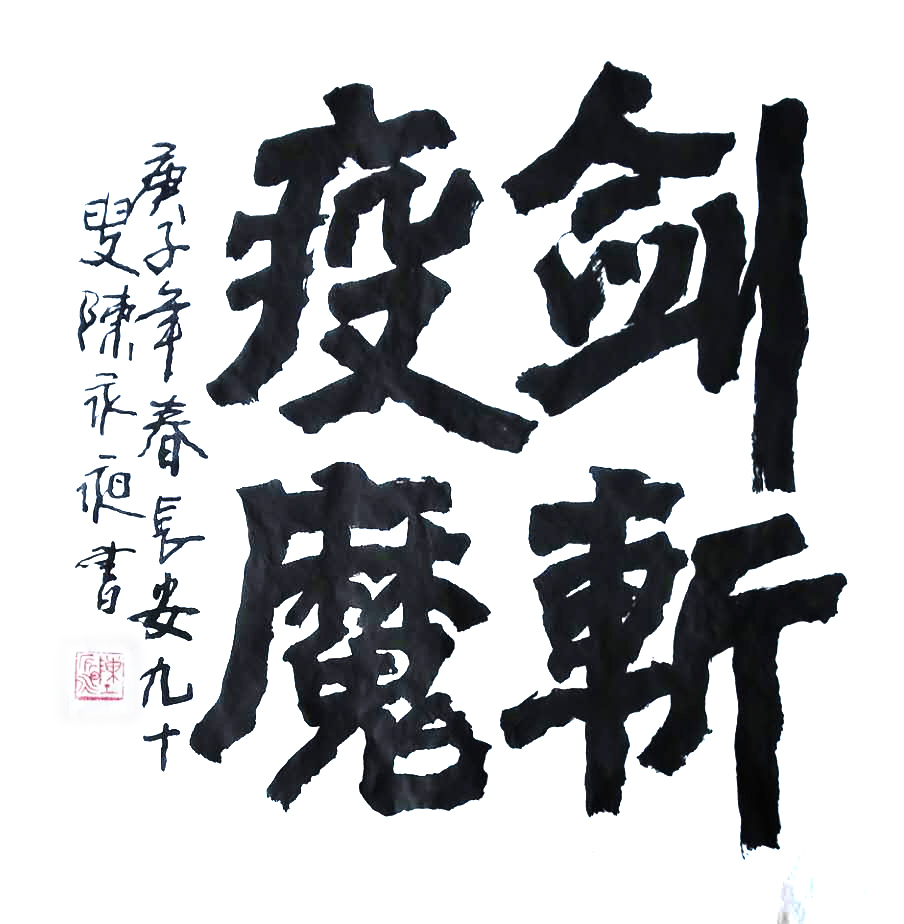 劍斬
疫魔
庚子年春長安九十
叟陳永𢓜書